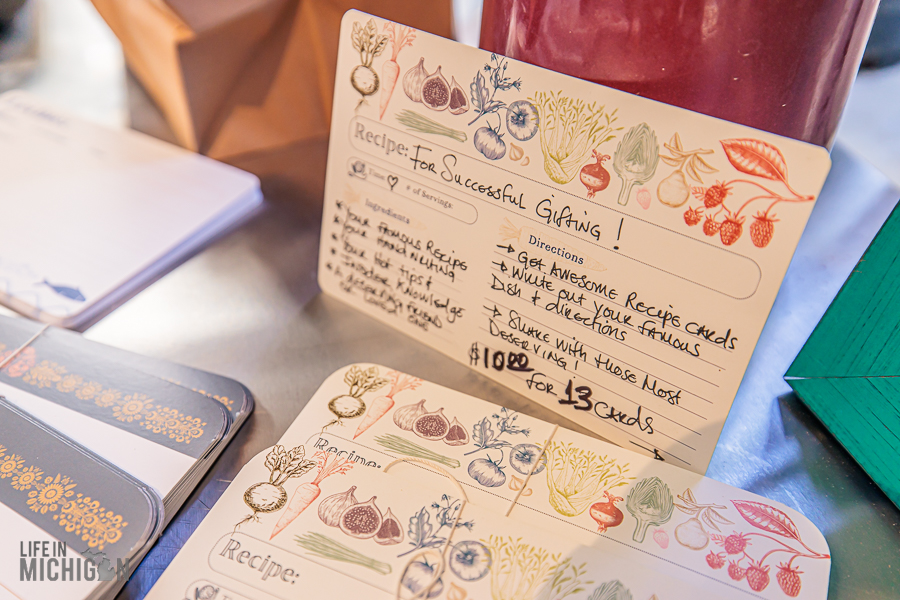 Recipe: For Successful Gifting!
Time # of Servings
Ingredients
* Your Famous Recipe
* Your Handwriting
* Your Hot Tips &
Insider Knowledge
* A Deserving Friend
or Loved One
Directions
→ Get Awesome Recipe Cards
→ Write out your famous
Dish & directions
→ Share with those most
Deserving!
$10.00
for 13 Cards
Recipe:
Recipe:
LIFE IN
MICHIGAN